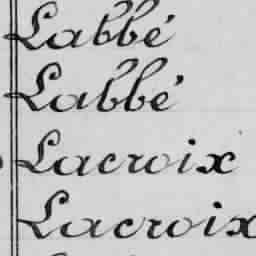 Labbé
Labbé
Lacroix
Lacroix